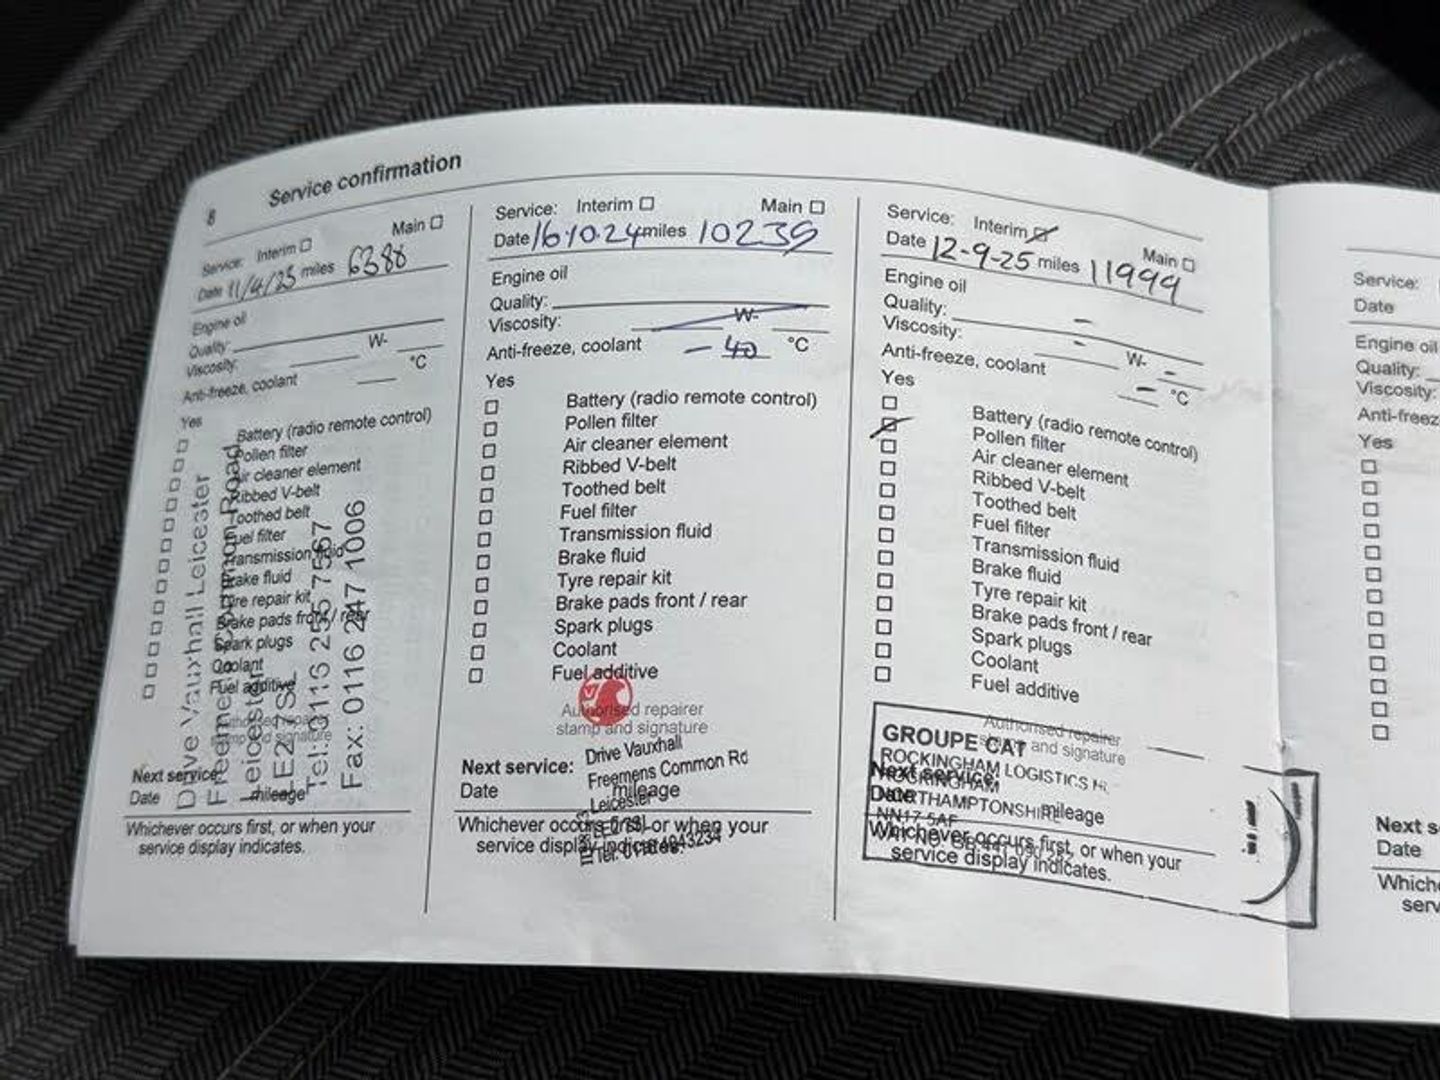 8
Service confirmation
Service: Interim Main
Date 11/4/23 miles 6388
Engine oil
Quality:
Viscosity: W-
Anti-freeze, coolant °C
Yes
Battery (radio remote control)
Pollen filter
Air cleaner element
Ribbed V-belt
Toothed belt
Fuel filter
Transmission fluid
Brake fluid
Tyre repair kit
Brake pads front / rear
Spark plugs
Coolant
Fuel additive
Authorised repairer
stamp and signature
Drive Vauxhall Leicester
Freemens Common Road
Leicester
LE2 7SL
Tel: 0116 255 7567
Fax: 0116 247 1006
Next service:
Date mileage
Whichever occurs first, or when your
service display indicates.
Service: Interim Main
Date 16.10.24 miles 10239
Engine oil
Quality:
Viscosity: W-
Anti-freeze, coolant -40 °C
Yes
Battery (radio remote control)
Pollen filter
Air cleaner element
Ribbed V-belt
Toothed belt
Fuel filter
Transmission fluid
Brake fluid
Tyre repair kit
Brake pads front / rear
Spark plugs
Coolant
Fuel additive
Authorised repairer
stamp and signature
Drive Vauxhall
Freemens Common Rd
Leicester
Next service:
Date mileage
Whichever occurs first, or when your
service display indicates.
Service: Interim Main
Date 12-9-25 miles 11999
Engine oil
Quality: -
Viscosity: - W- -
Anti-freeze, coolant - °C
Yes
Battery (radio remote control)
Pollen filter
Air cleaner element
Ribbed V-belt
Toothed belt
Fuel filter
Transmission fluid
Brake fluid
Tyre repair kit
Brake pads front / rear
Spark plugs
Coolant
Fuel additive
Authorised repairer
stamp and signature
GROUPE CAT
ROCKINGHAM LOGISTICS
ROCKINGHAM
NORTHAMPTONSHIRE
NN17 5AF
Next service:
Date mileage
Whichever occurs first, or when your
service display indicates.
Service:
Date
Engine oil
Quality:
Viscosity:
Yes
Date